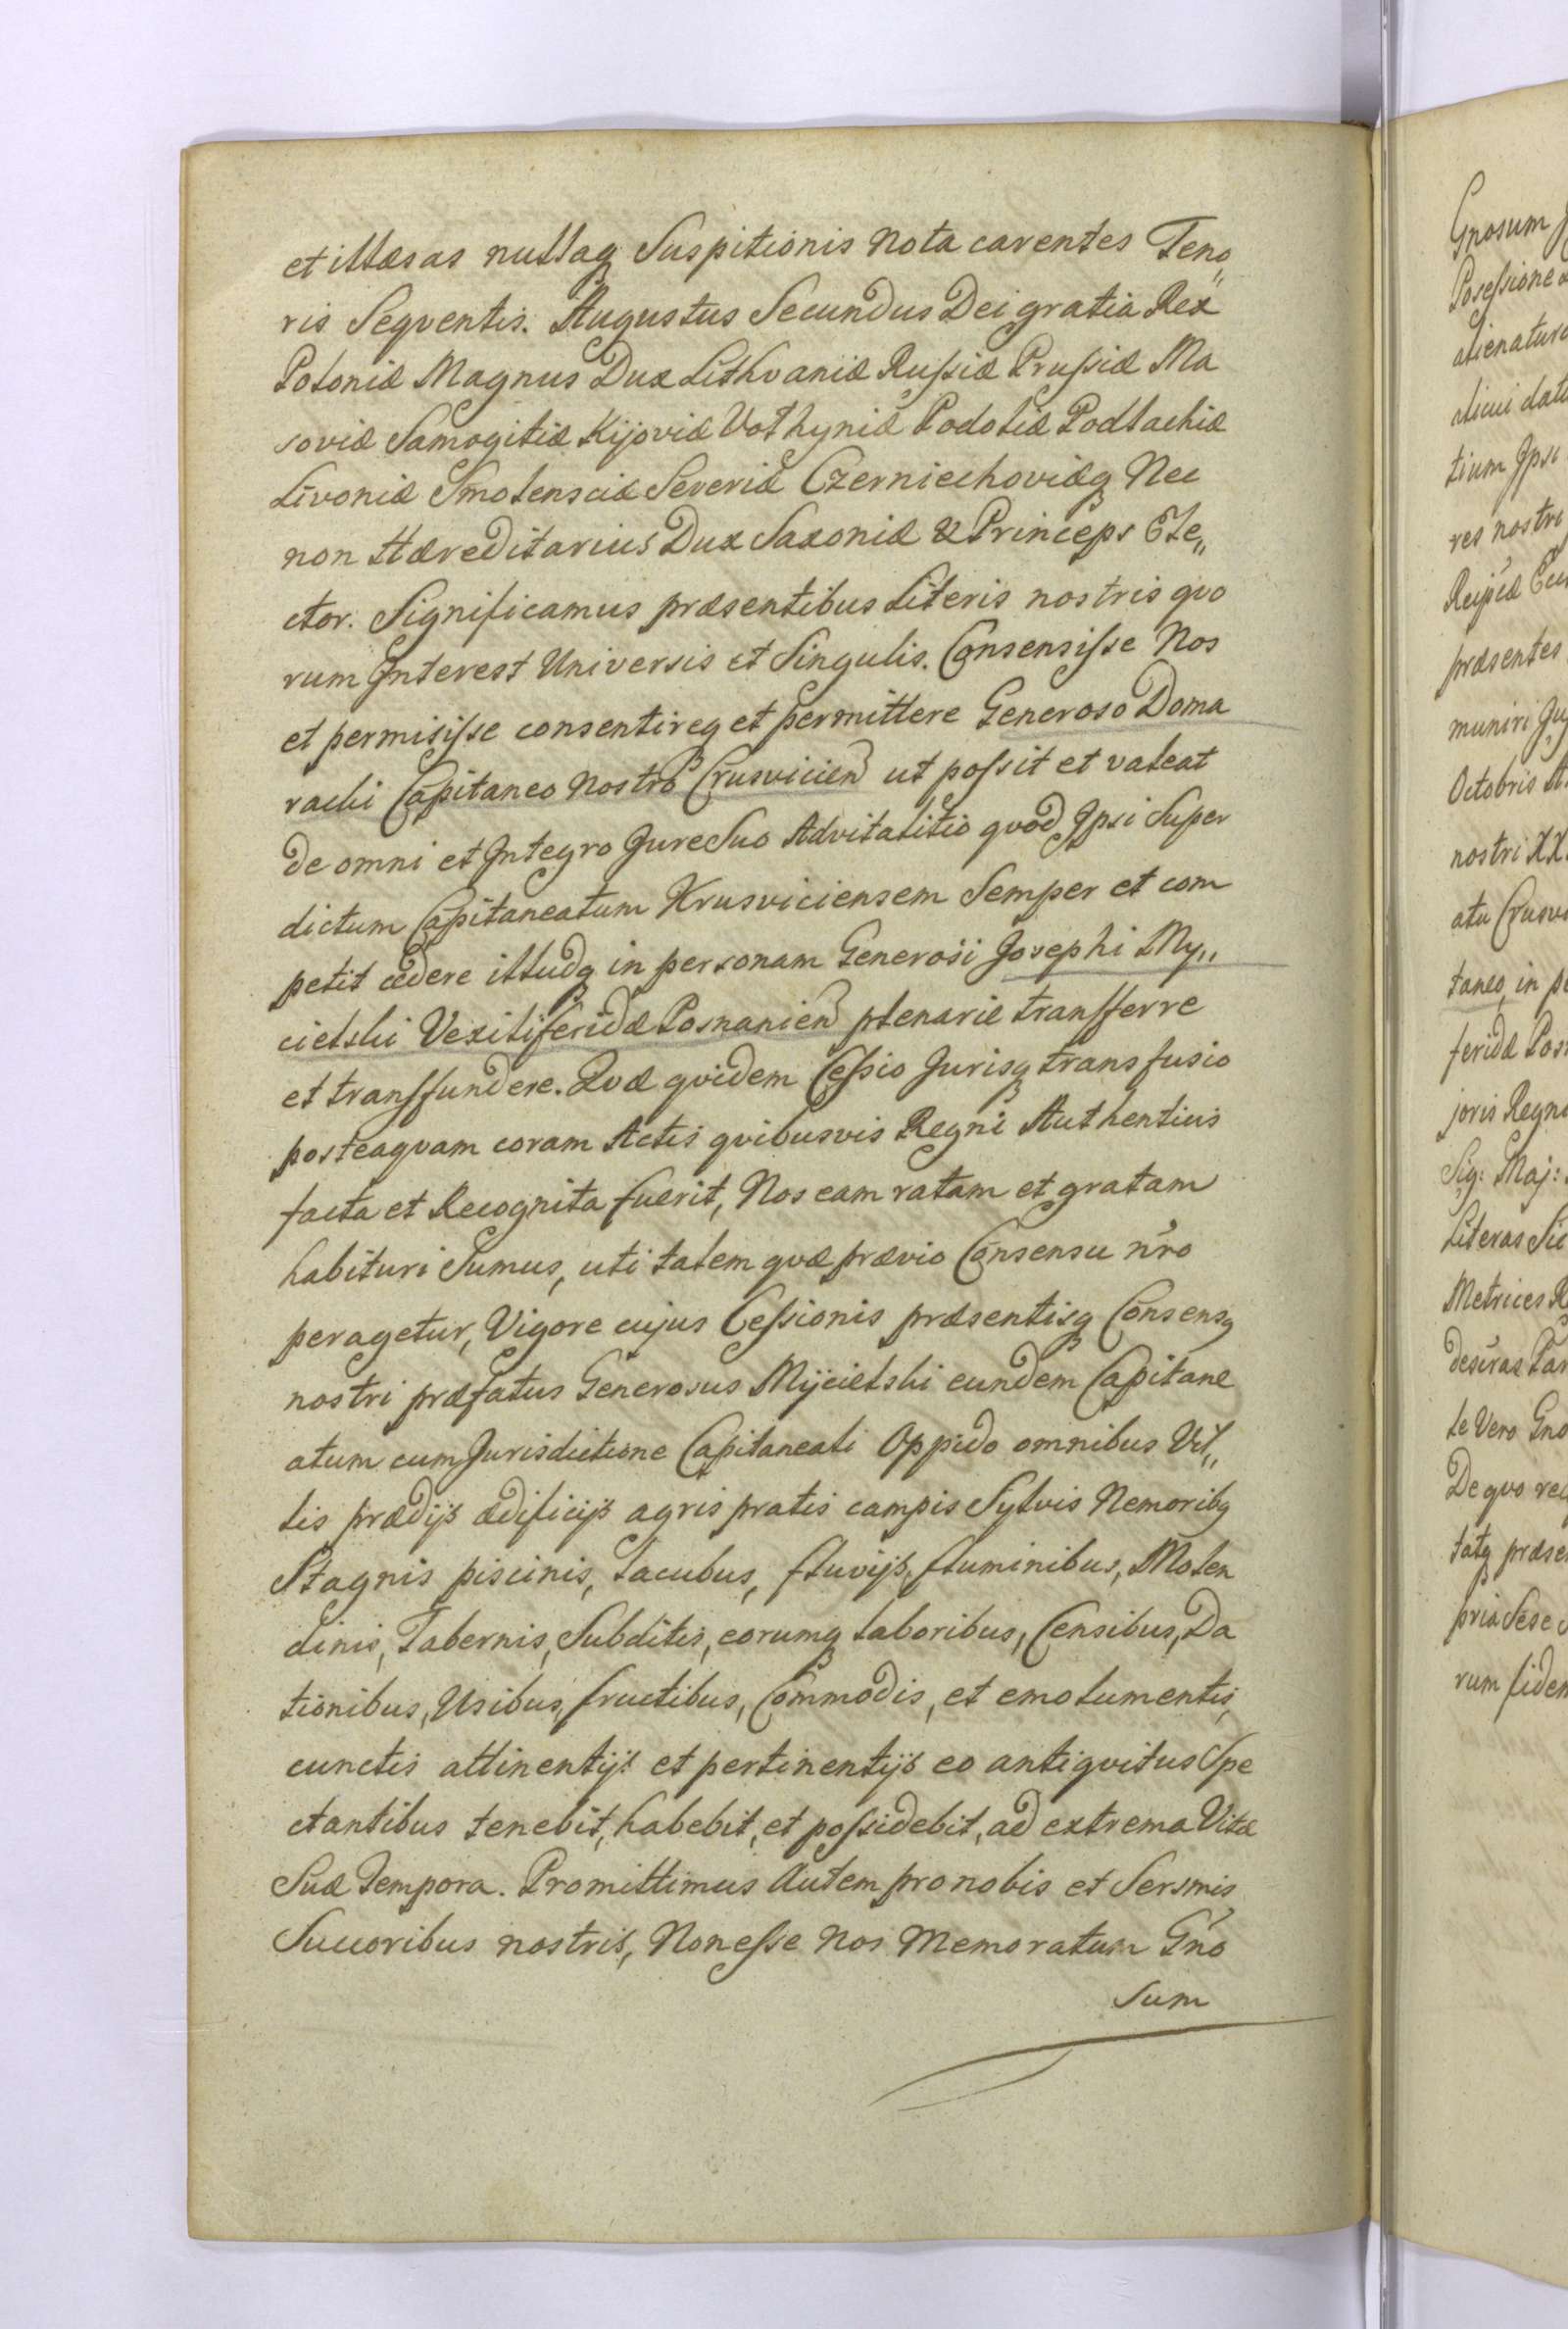 et illæsas nullaqꝫ Suspitionis Nota carentes Teno„
ris Seqventis. Augustus Secundus Dei gratia Rex
Poloniæ Magnus Dux Lithvaniæ Rußiæ Prußiæ Ma
soviæ Samogitiæ Kijoviæ Volhyniæ Podoliæ Podlachiæ
Livoniæ Smolensciæ Severiæ Czerniechoviæqꝫ Nec
non Hæreditarius Dux Saxoniæ & Princeps Ele„
ctor. Significamus præsentibus Literis nostris qvo
rum Interest Universis et Singulis. Consensiſse Nos
et permisiſse consentireqꝫ et permittere Generoso Doma
racki Capitaneo Nostro Crusvicien ut poſsit et valeat
de omni et Integro Jure Suo Advitalitio qvod Ipsi Super
dictum Capitaneatum Krusviciensem Semper et com
petit cædere illudqꝫ in personam Generosi Josephi My„
cielski Vexiliferidæ Posnanien plenarie transferre
et transfundere. Qvæ qvidem Ceſsio Jurisqꝫ transfusio
posteaqvam coram Actis qvibusvis Regni Authenticis
facta et Recognita fuerit, Nos eam ratam et gratam
habituri Sumus, uti talem qvæ prævio Consensu nro
peragetur, Vigore cujus Ceſsionis præsentisqꝫ Consensꝫ
nostri præfatus Generosus Mycielski eundem Capitane
atum cum Jurisdictione Capitaneali Oppido omnibus Vil„
lis prædijs ædificijs agris pratis campis Sylvis Nemoribꝫ
Stagnis piscinis, Lacubus, fluvijs, fluminibus, Molen
dinis, Tabernis, Subditis, eorumqꝫ laboribus, Censibus, Da
tionibus, Usibus, fructibus, Commodis, et emolumentis,
cunctis attinentijs et pertinentijs eo antiqvitus Spe
ctantibus tenebit, habebit, et poſsidebit, ad extrema Vitæ
Suæ Tempora. Promittimus Autem pro nobis et Sersmis
Succoribus nostris, Non eſse Nos Memoratum Gno
sum
Gnosum
Poseſsione
alienatur
alicui dat
tium Ipsi
res nostri
Reipcæ
præsentes
muniri
Octobris A
nostri XX
atu Crusv
taneo, in pe
feridæ Pos
joris Regn
Sig: Maj:
Literas Sic
Metrices R
te Vero Gno
De qvo re
tatqꝫ præse
pria Sese
rum fidem